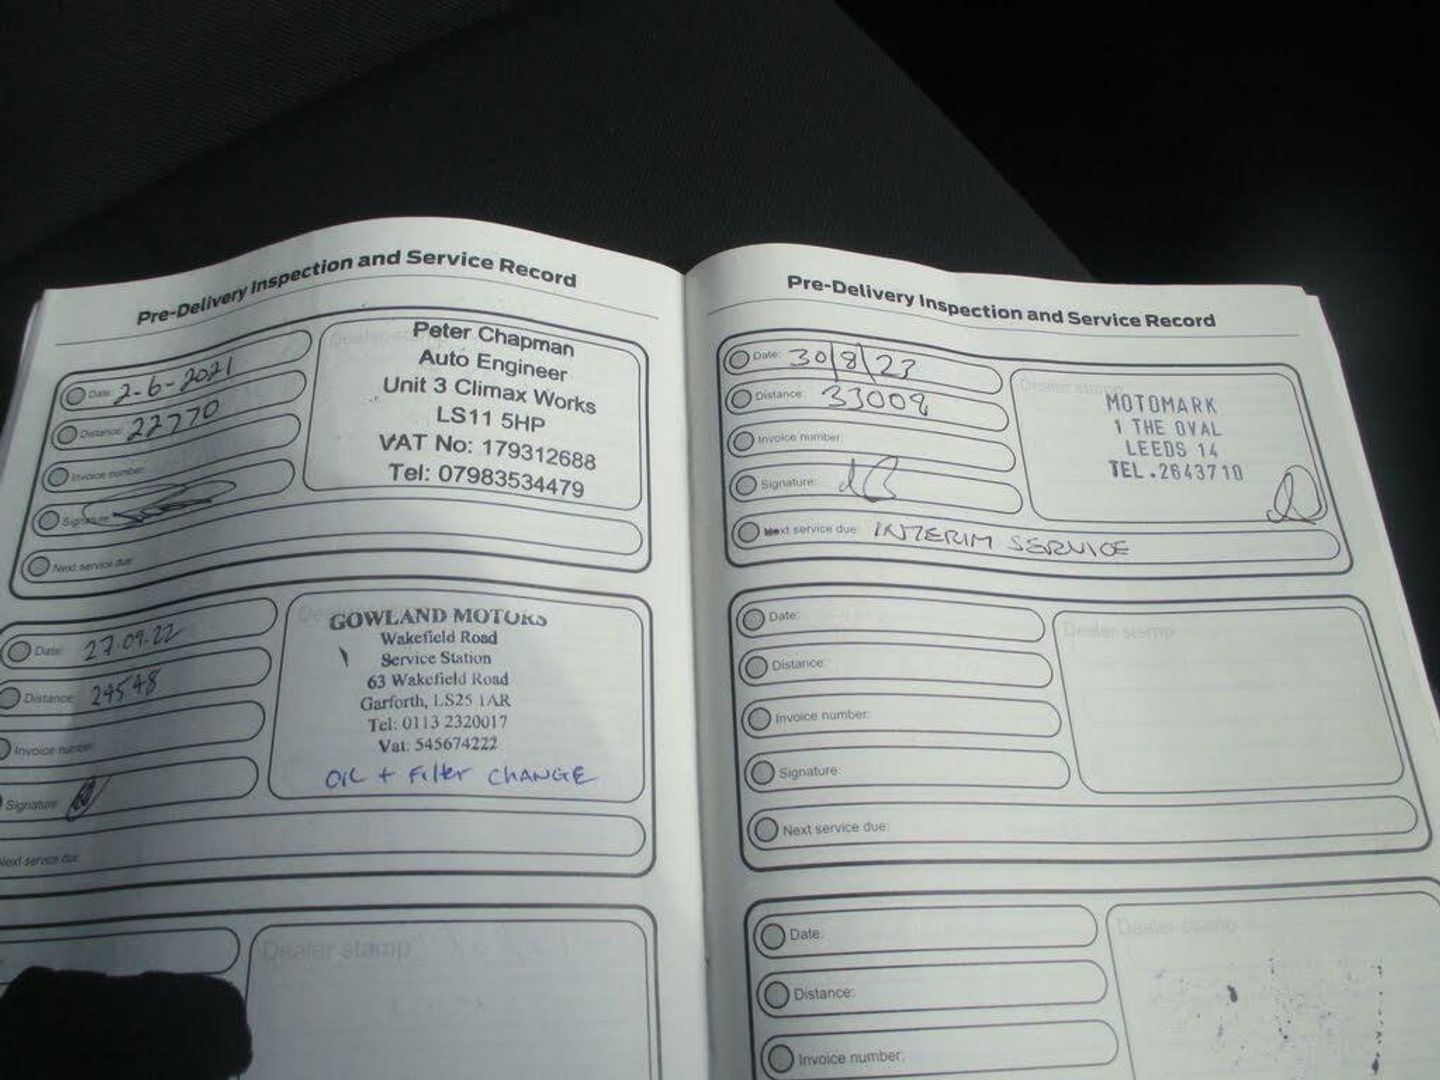 Pre-Delivery Inspection and Service Record
Date: 2-6-2021
Distance: 22770
Invoice number:
Signature:
Next service due:
Peter Chapman
Auto Engineer
Unit 3 Climax Works
LS11 5HP
VAT No: 179312688
Tel: 07983534479
Date: 27.09.22
Distance: 24548
Invoice number:
Signature:
Next service due
GOWLAND MOTORS
Wakefield Road
Service Station
63 Wakefield Road
Garforth, LS25 1AR
Tel: 0113 2320017
Vat: 545674222
OIL + Filter CHANGE
Dealer stamp
Pre-Delivery Inspection and Service Record
Date: 30/8/23
Distance: 33009
Invoice number:
Signature:
Next service due: INTERIM SERVICE
Dealer stamp
MOTOMARK
1 THE OVAL
LEEDS 14
TEL.2643710
Date:
Distance:
Invoice number:
Signature:
Next service due:
Dealer stamp
Date:
Distance:
Invoice number:
Dealer stamp